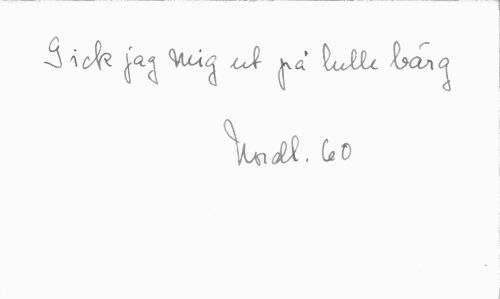 Gick jag mig ut på lulle bärg
Nordl. 60